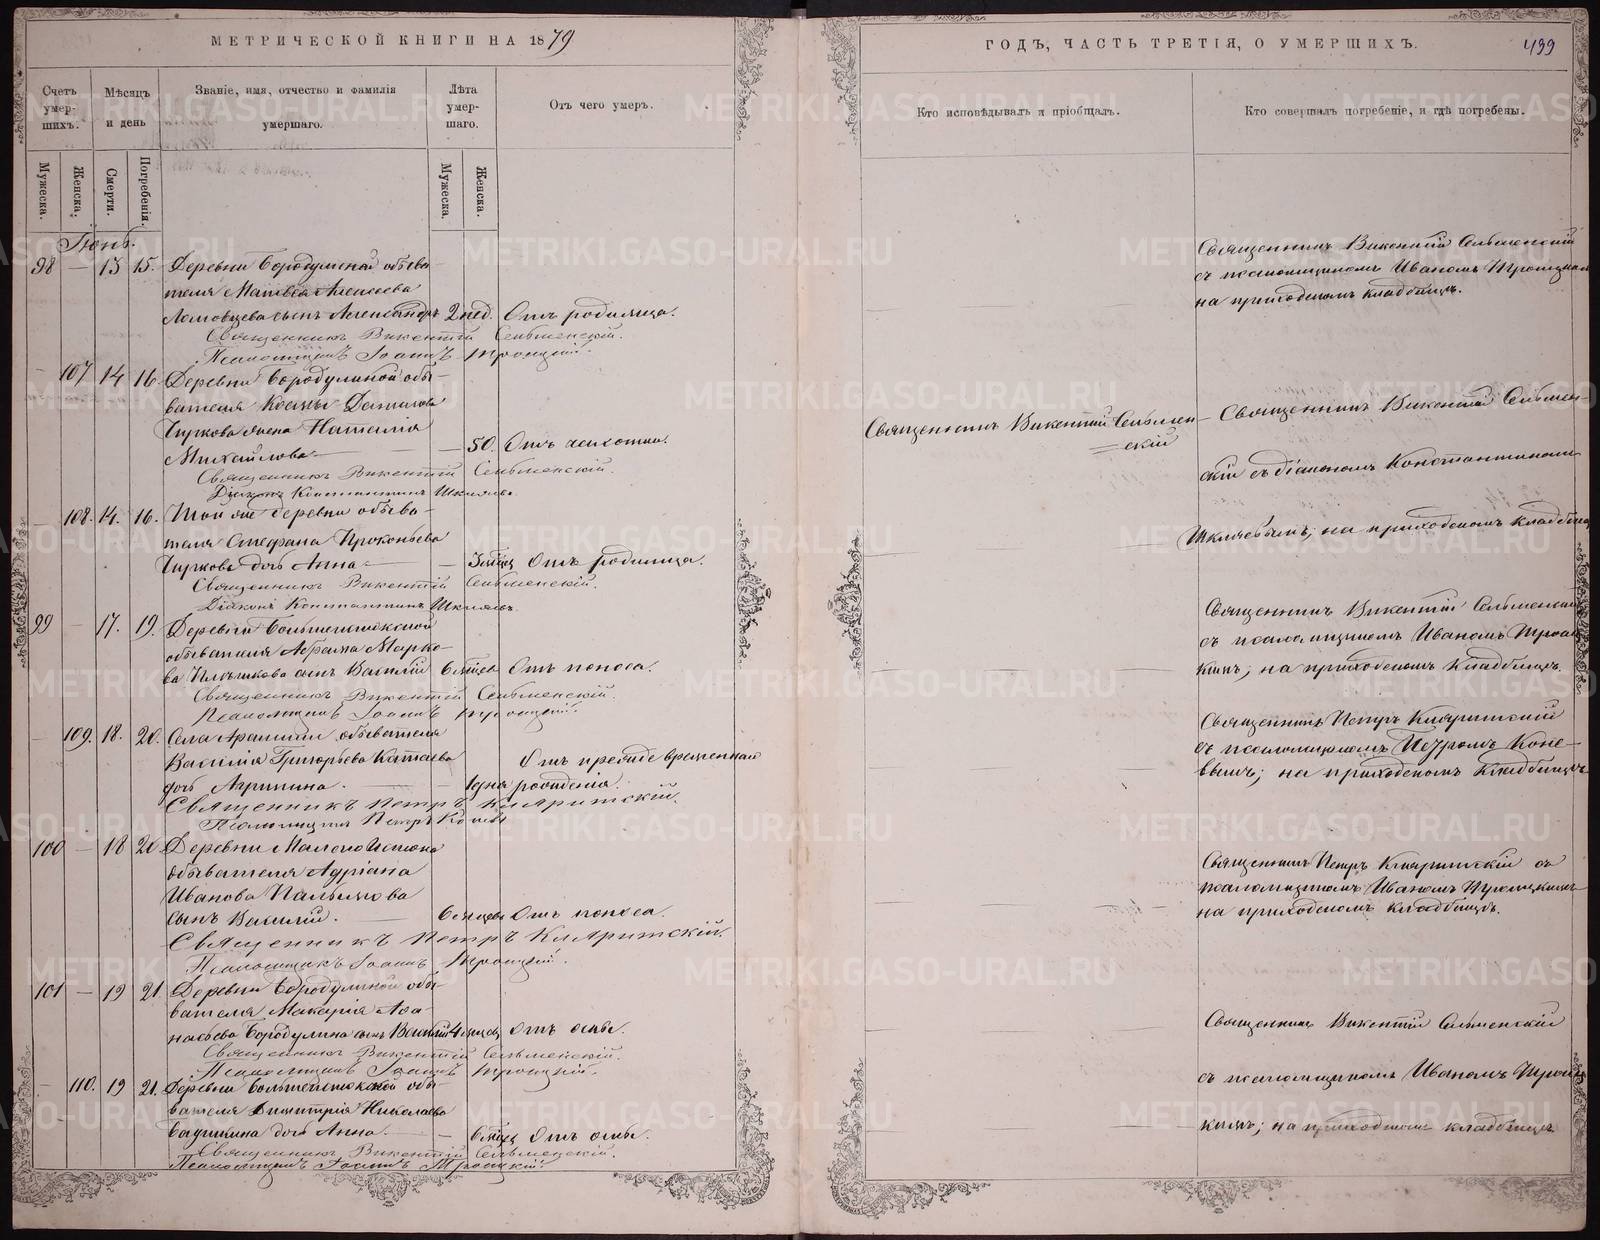 МЕТРИЧЕСКОЙ КНИГИ НА 1879
ГОДЪ, ЧАСТЬ ТРЕТІЯ, О УМЕРШИХЪ.
499
Счетъ умер-шихъ.
Мѣсяцъ и день
Званіе, имя, отчество и фамилія умершаго.
Лѣта умер-шаго.
Отъ чего умеръ.
Кто исповѣдывалъ и пріобщалъ.
Кто совершалъ погребеніе, и гдѣ погребены.
Мужеска.
Женска.
Смерти.
Погребенія.
Мужеска.
Женска.
Іюнь.
98 — 13 15. Деревни Бородулиной обыва-
теля Матвѣя Алексѣева
Ломовцева сынъ Александръ 2 нед. Отъ родимца.
Священникъ Викентій Сельменскій.
Псаломщикъ Іоаннъ Троицкій.
Священникъ Викентій Сельменскій
съ псаломщикомъ Иваномъ
на приходскомъ кладбищѣ.
— 107 14 16. Деревни Бородулиной обы-
вателя Козьмы Данилова
Чиркова жена Наталія
Михайлова — — 50. Отъ чахотки.
Священникъ Викентій Сельменскій.
Діаконъ Константинъ
Священникъ Викентій Сельмен-
скій
Священникъ Викентій Сельмен-
скій съ діакономъ Константиномъ
на приходскомъ кладбищѣ
— 108. 14. 16. Той же деревни обыва-
теля Стефана Прокопьева
Чиркова дочь Анна — — Отъ родимца.
Священникъ Викентій Сельменскій.
Діаконъ Константинъ
99 — 17. 19. Деревни
обывателя Марко-
ва сынъ Василій 6 мѣсяц. Отъ поноса.
Священникъ Викентій Сельменскій.
Псаломщикъ Іоаннъ Троицкій.
Священникъ Викентій Сельменскій
съ псаломщикомъ Иваномъ Троиц-
кимъ; на приходскомъ кладбищѣ.
— 109. 18. 20. Села Арамили обывателя
Василія Григорьева Катаева
дочь Агрипина. — — 1 дня Отъ преждевременнаго
рожденія.
Священникъ Петръ
Псаломщикъ Петръ Коневъ
Священникъ Петръ
съ псаломщикомъ Петромъ Коне-
вымъ; на приходскомъ кладбищѣ
100 — 18 20 Деревни Малаго Истока
обывателя Адріана
Иванова Пальянова
сынъ Василій. — 6 мѣсяцев Отъ поноса.
Священникъ Петръ
Псаломщикъ Іоаннъ Троицкій.
Священникъ Петръ съ
псаломщикомъ Иваномъ Троицкимъ
на приходскомъ кладбищѣ.
101 — 19 21 Деревни Бородулиной обы-
вателя Макарія Аѳа-
насьева Бородулина сынъ Василій 4 мѣсяц Отъ оспы.
Священникъ Викентій Сельменскій.
Псаломщикъ Іоаннъ Троицкій.
Священникъ Викентій Сельменскій
съ псаломщикомъ Иваномъ Троиц-
кимъ; на приходскомъ кладбищѣ
— 110. 19 21. Деревни обы-
вателя Димитрія Николаева
дочь Анна. — — 6 мѣсяц Отъ оспы.
Священникъ Викентій Сельменскій.
Псаломщикъ Іоаннъ Троицкій.
METRIKI.GASO-URAL.RU